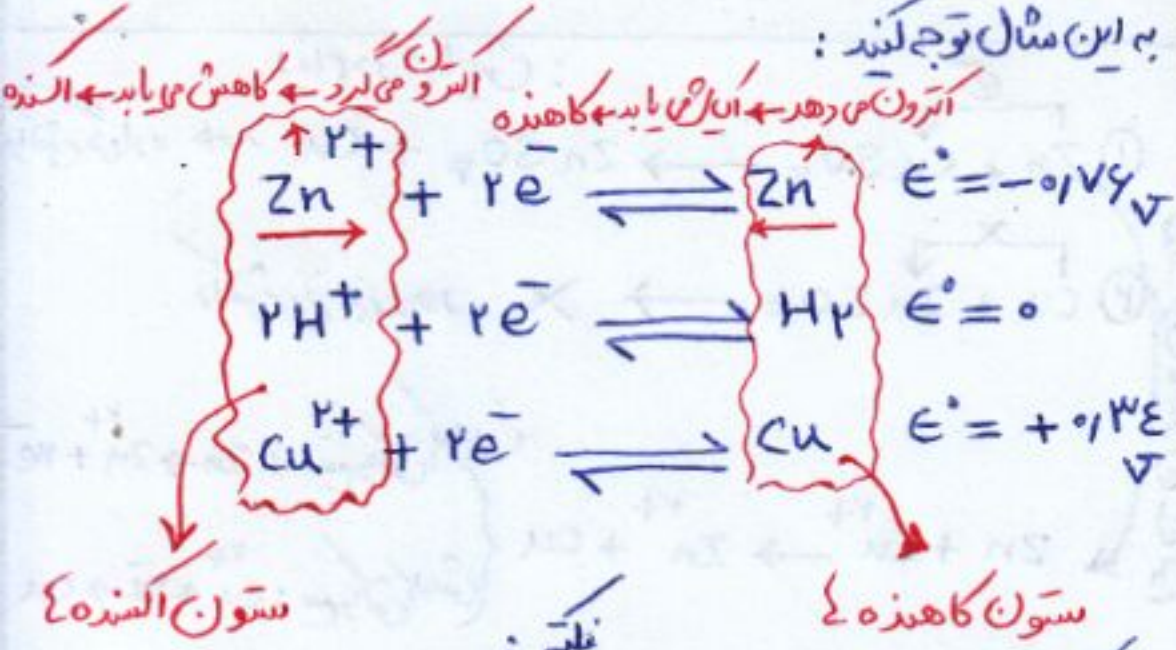 به این مثال توجه کنید :
الکترون می گیرد ← کاهش می یابد ← اکسنده
اکترون می دهد ← اکایش می یابد ← کاهنده
Zn²⁺ + ۲e⁻ ⇌ Zn E° = -۰٫۷۶ v
۲H⁺ + ۲e⁻ ⇌ H۲ E° = ۰
Cu²⁺ + ۲e⁻ ⇌ Cu E° = +۰٫۳٤ v
ستون اکسنده ها
ستون کاهنده ها
نکته :